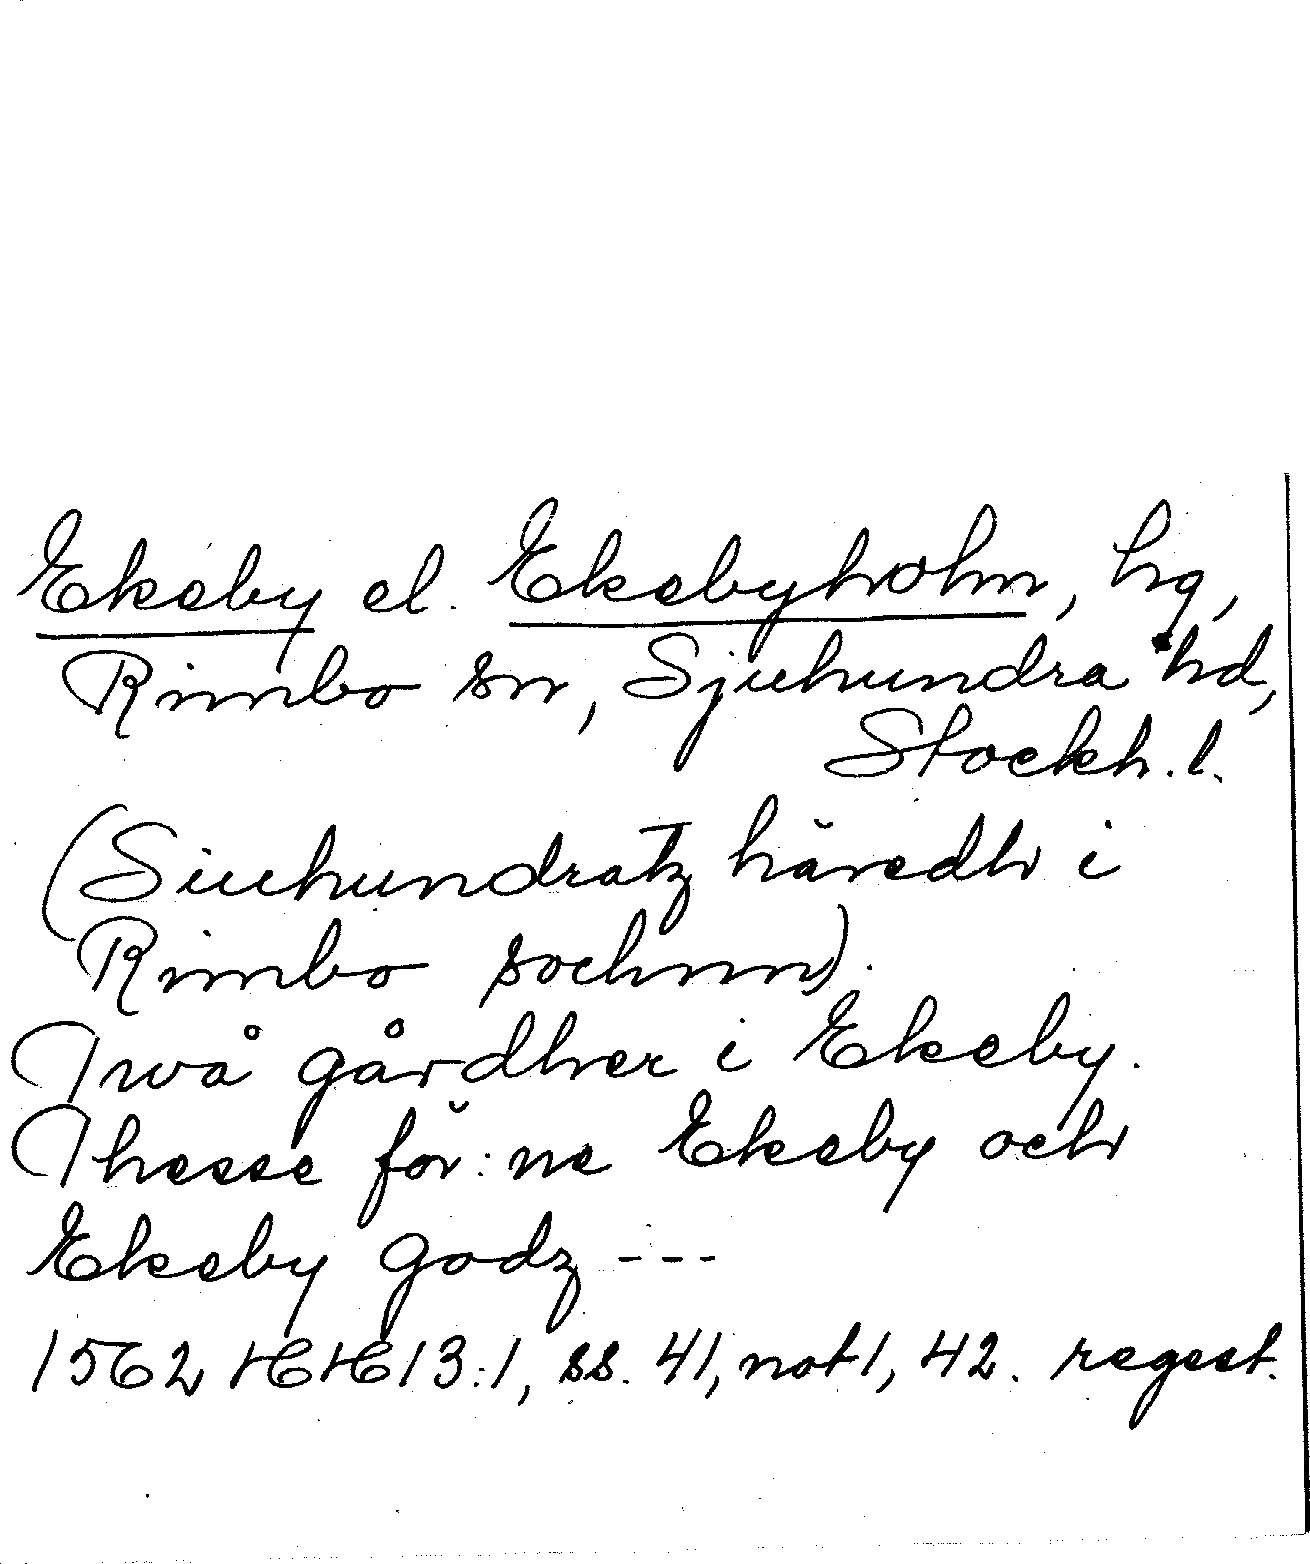 Ekeby el. Ekebyholm, hg,
Rimbo sn, Sjuhundra hd,
Stockh. l.
(Siuhundratz häredh i
Rimbo sochnn).
Twå gårdher i Ekeby.
Thesse för:ne Ekeby och
Ekeby godz ---
1562 HH 13:1, ss. 41, not 1, 42. regest.